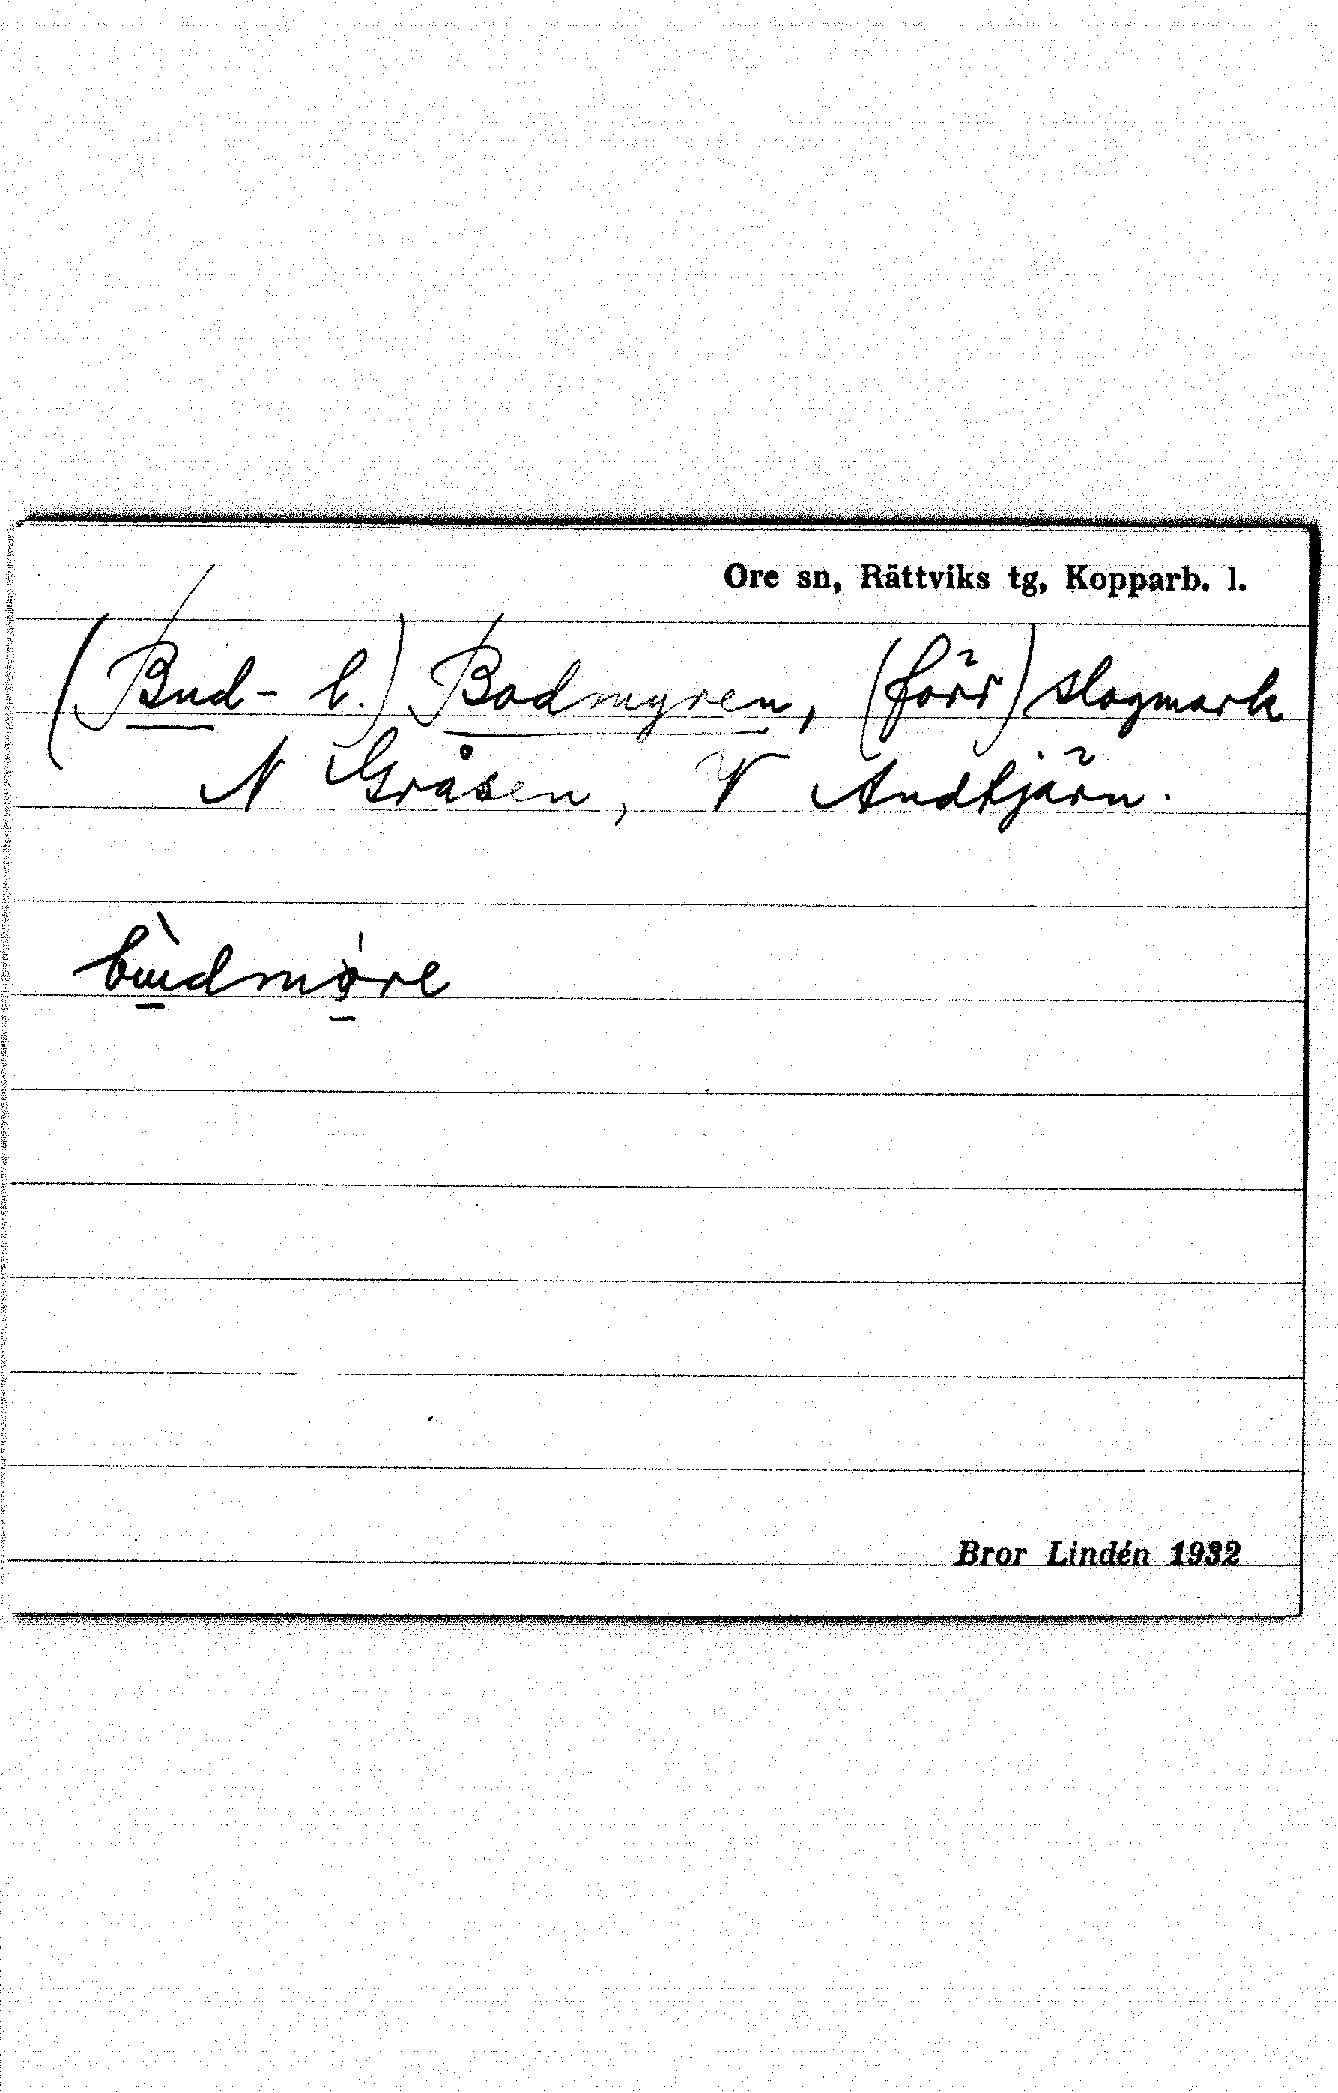 Ore sn, Rättviks tg, Kopparb. l.
(Bud- l.) Bodmyren, (förr) slogmark
N Gråsen, V Andtjärn.
bùdmǿre
Bror Lindén 1932